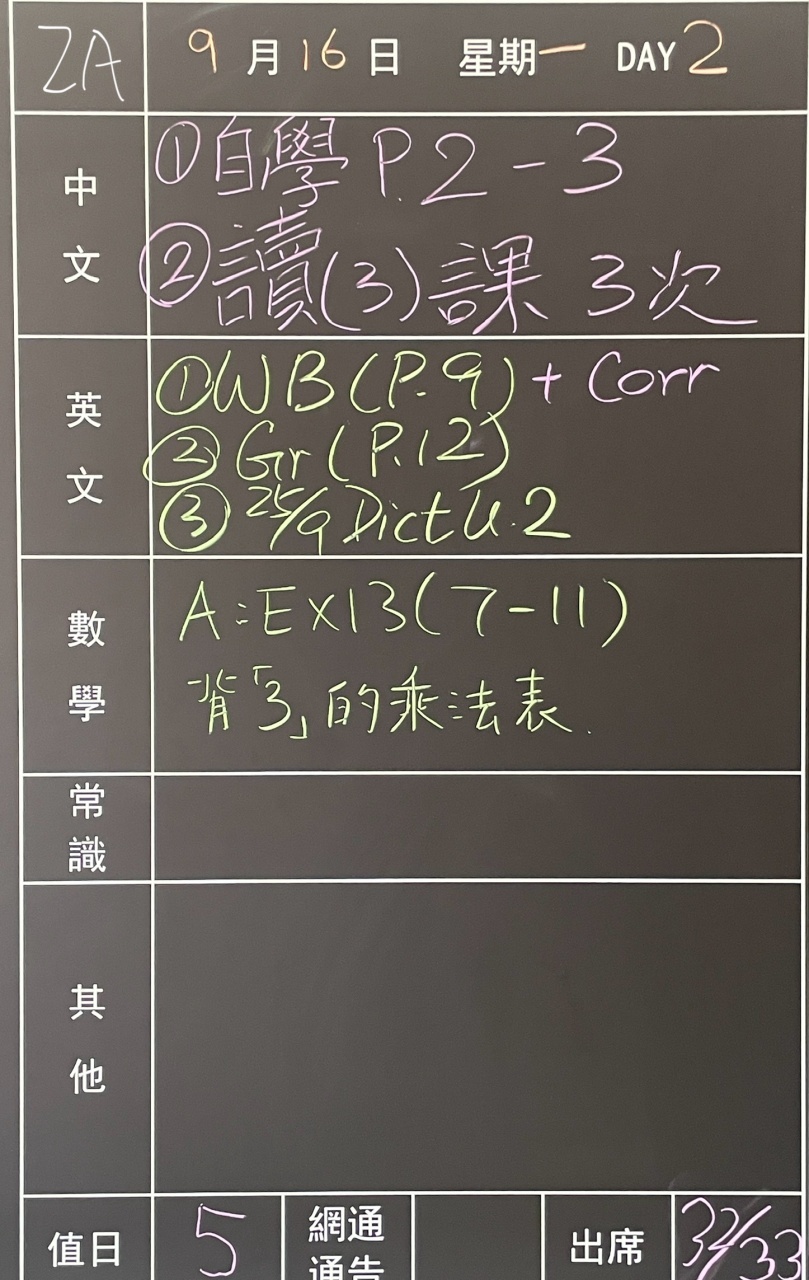 2A 9月16日 星期一 DAY 2
中文
①自學 P.2-3
②讀(3)課 3次
英文
①WB(P.9)+ Corr
②Gr(P.12)
③25/9 Dict U.2
數學
A:EX13(7-11)
背「3」的乘法表.
常識
其他
值日 5 網通通告 出席 32/33